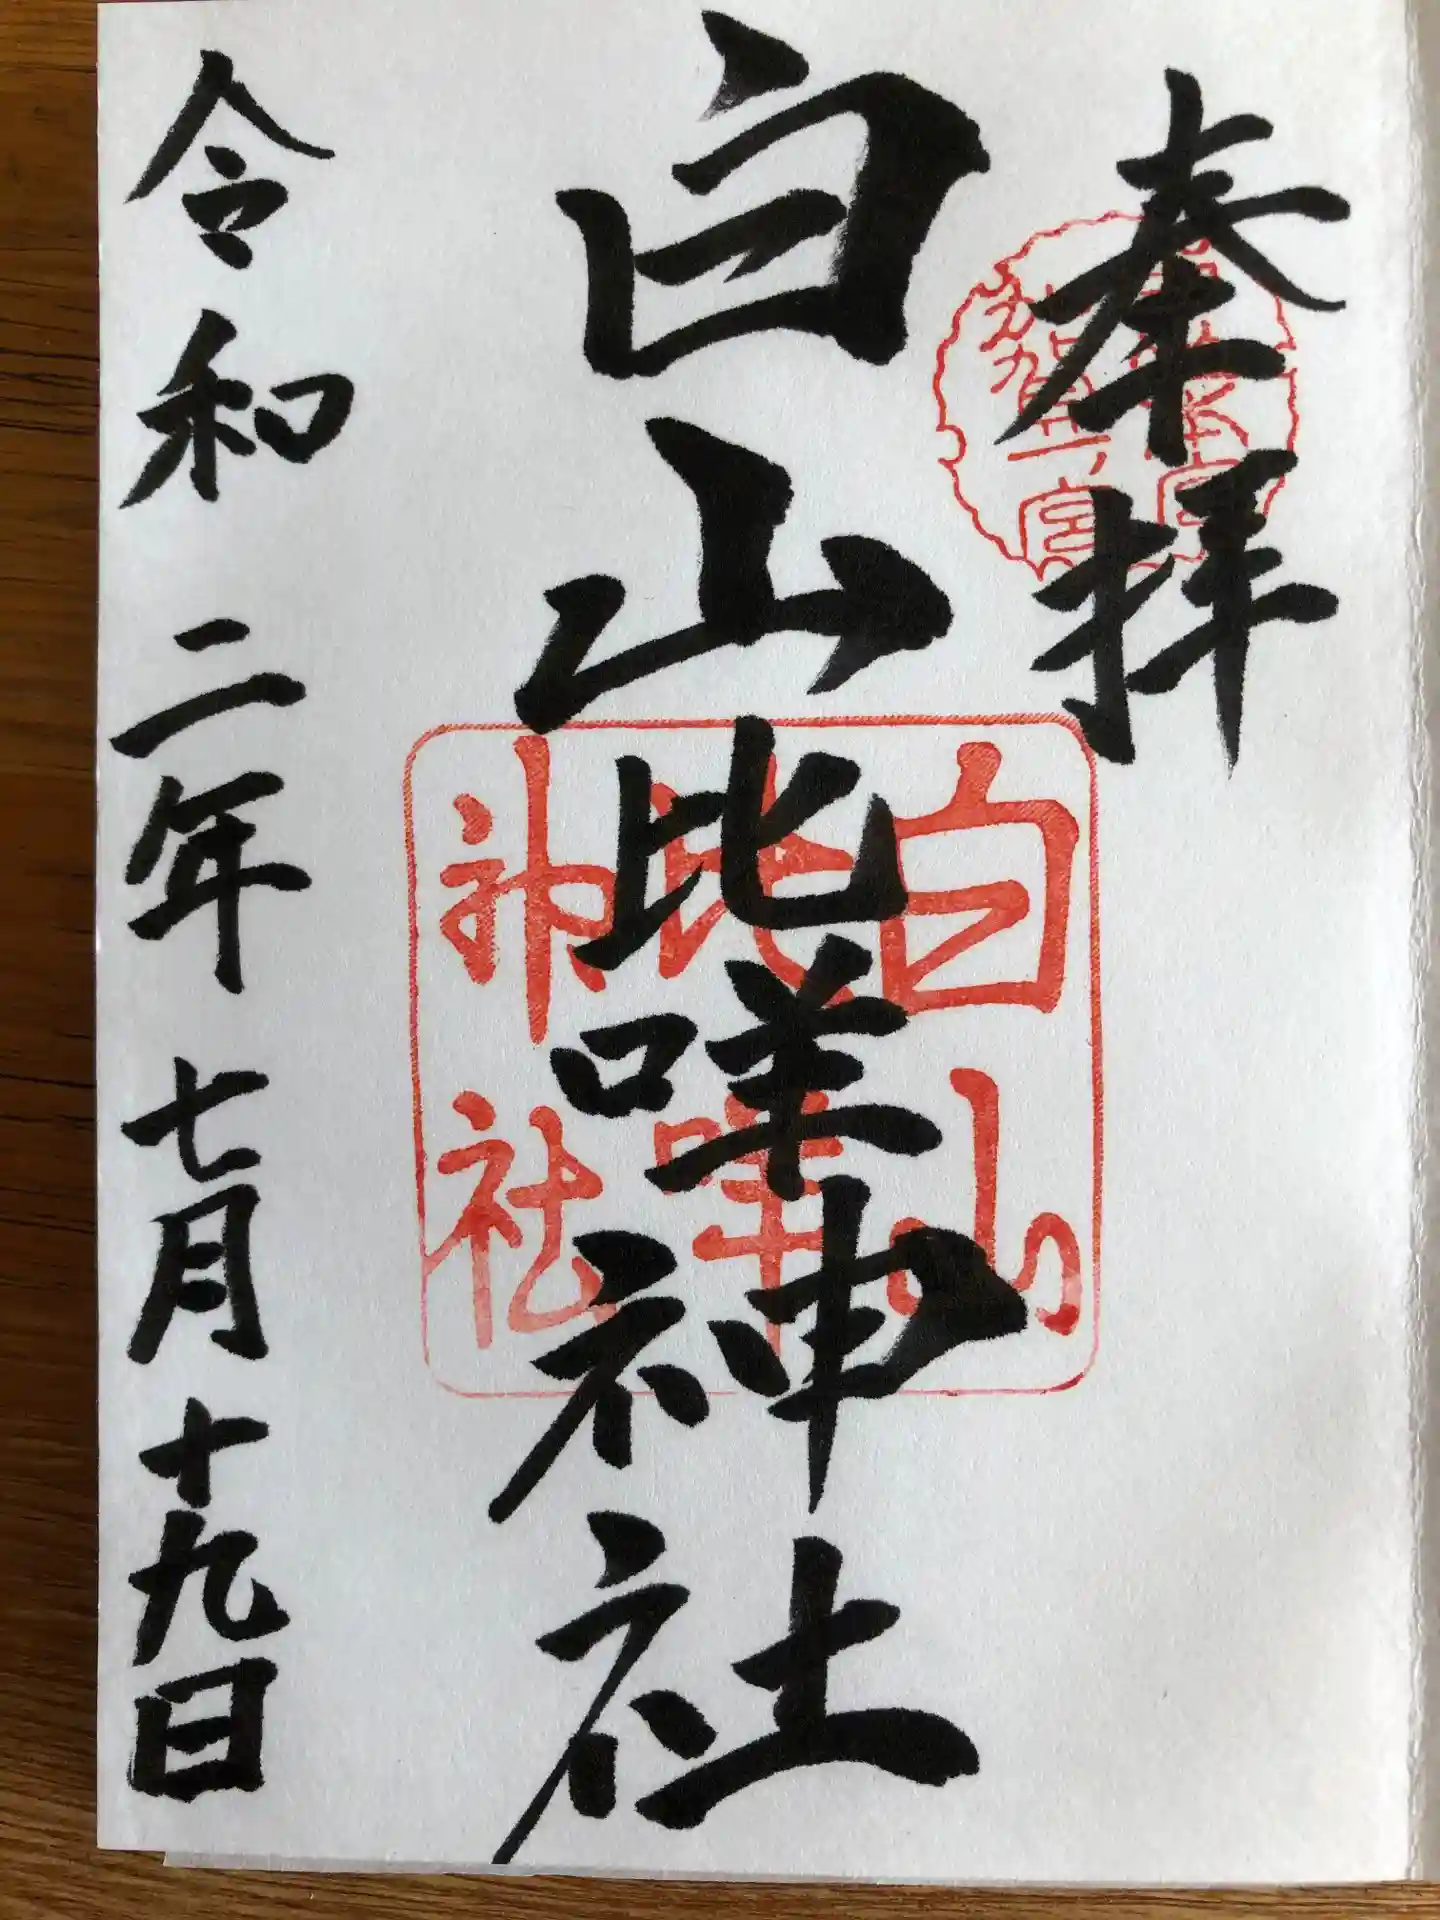 奉拝
白山比咩神社
令和二年七月十九日
加賀一ノ宮
白山
比咩
神社